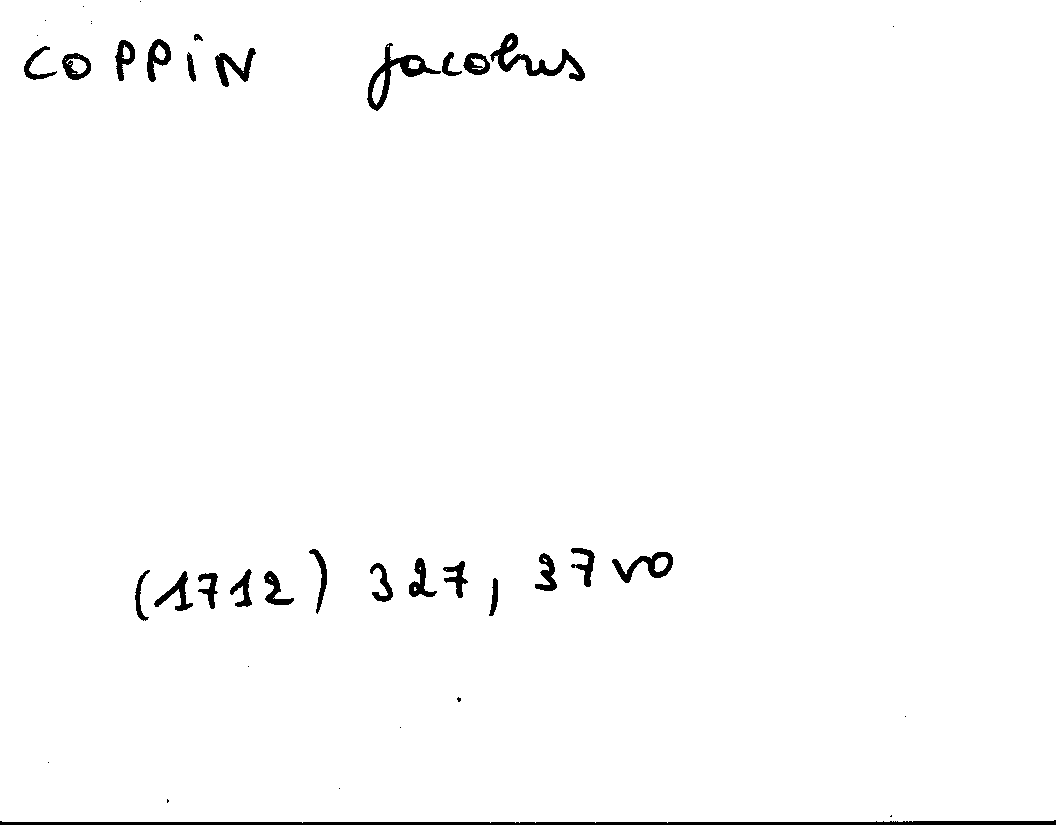 COPPIN Jacobus
(1712) 327, 37vo